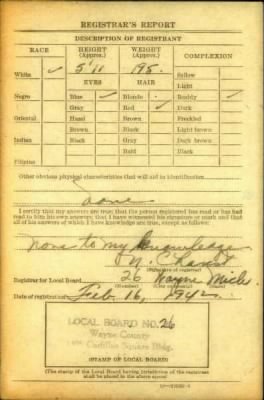 REGISTRAR'S REPORT
DESCRIPTION OF REGISTRANT
RACE HEIGHT (Approx.) WEIGHT (Approx.) COMPLEXION
White ✓ 5'11 195. Sallow
EYES HAIR Light
Negro Blue ✓ Blonde Ruddy ✓
Gray Red ✓ Dark
Oriental Hazel Brown Freckled
Brown Black Light brown
Indian Black Gray Dark brown
Bald Black
Filipino
Other obvious physical characteristics that will aid in identification
none
I certify that my answers are true; that the person registered has read or has had
read to him his own answers; that I have witnessed his signature or mark and that
all of his answers of which I have knowledge are true, except as follows:
none to my knowledge
(Signature of registrar)
Registrar for Local Board 26 Wayne Mich
(Number) (City or county) (State)
Date of registration Feb 16, 1942
LOCAL BOARD NO. 26
Wayne County
Cadillac Square Bldg.
(STAMP OF LOCAL BOARD)
(The stamp of the Local Board having jurisdiction of the registrant
shall be placed in the above space.)